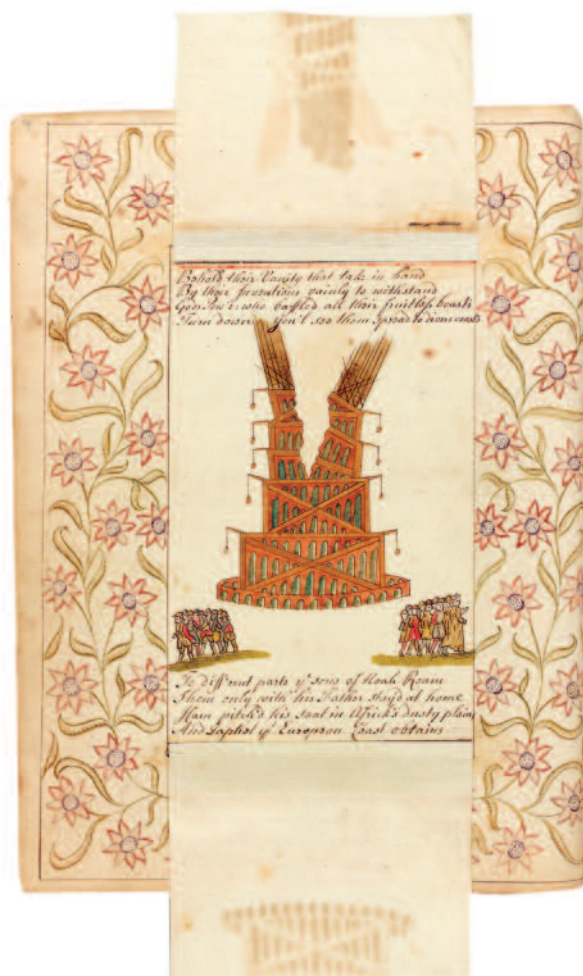 Behold their Vanity that take in hand
By their Inventions vainly to withstand
Gods Pow'r who baffled all their fruitless boasts
Turn down & you'l see them spread to divers coasts
To diff'rent parts yᵉ sons of Noah Roam
Shem only with his Father stay'd at home
Ham pitch'd his seat in Africk's dusty plain
And Japhet yᵉ European Coast obtains